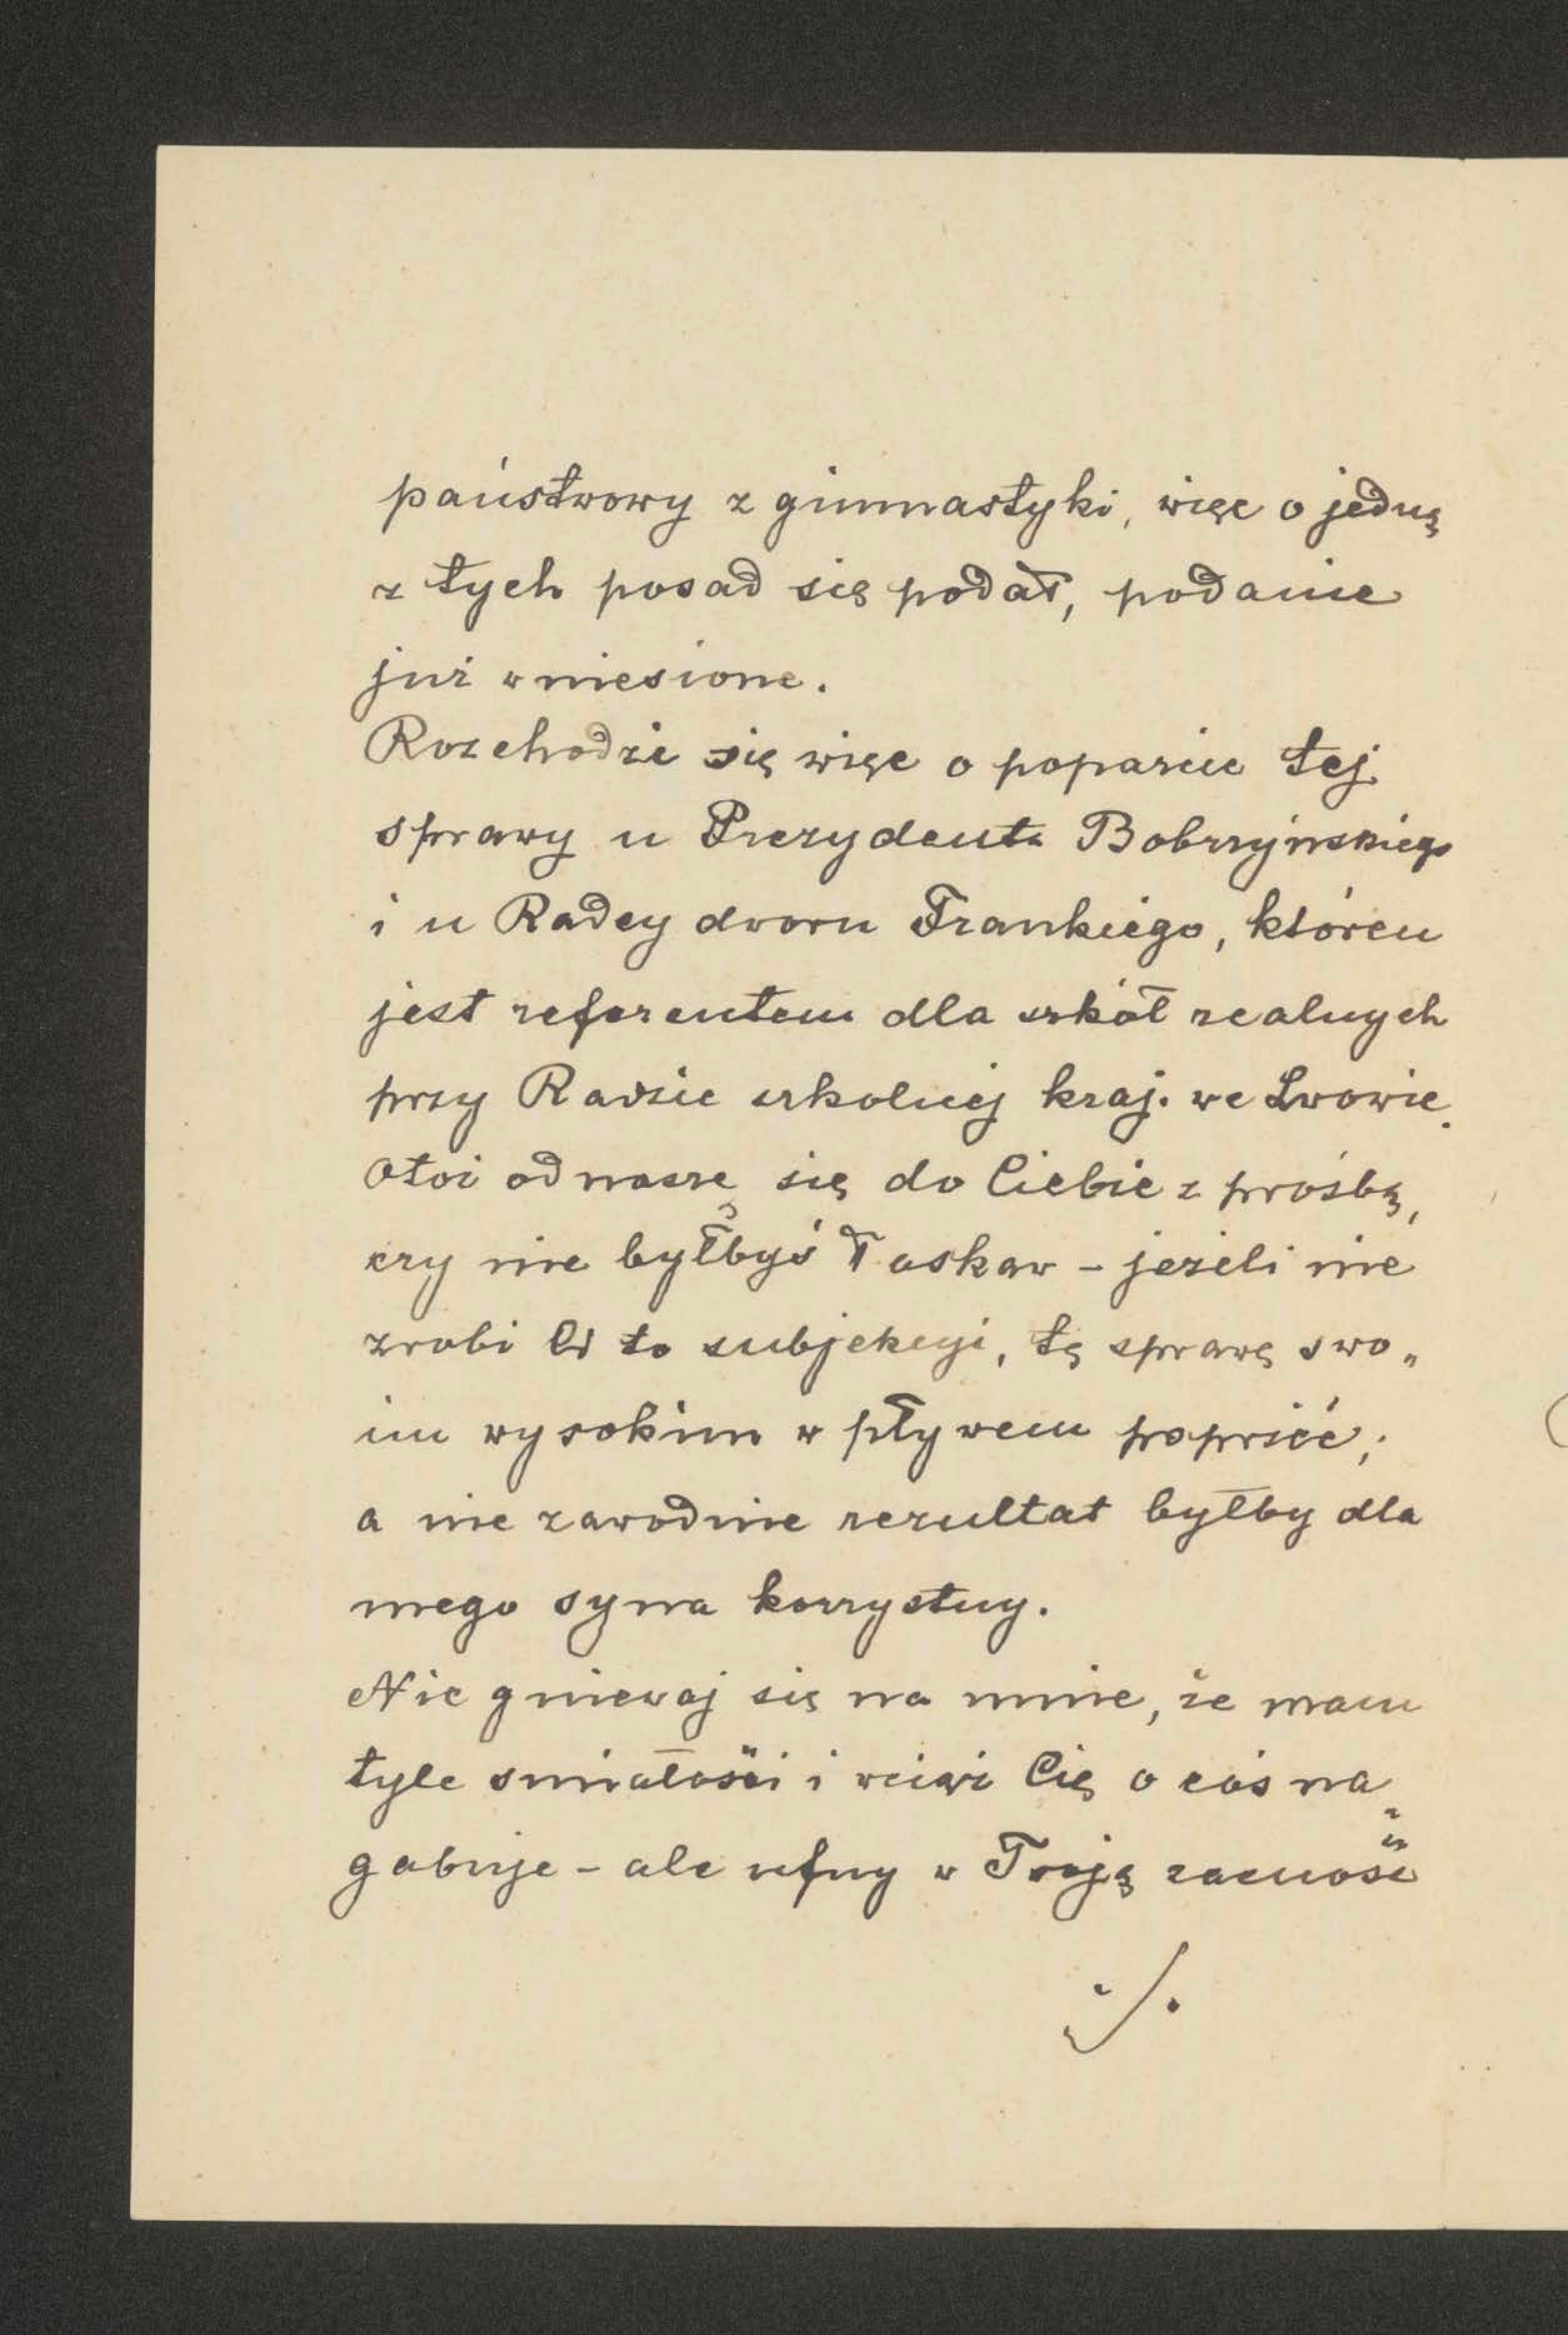 państwowy z gimnastyki, więc o jedną
z tych posad się podał, podanie
już wniesione.
Rozchodzi się więc o poparcie tej
sprawy u Prezydenta Bobrzyńskiego
i u Radcy dworu Frankiego, któren
jest referentem dla szkół realnych
przy Radzie szkolnej kraj. we Lwowie.
Otoż odnoszę się do Ciebie z prośbą,
czy nie byłbyś łaskaw – jeżeli nie
zrobi Ci to subjekcyi, tę sprawę swo„
im wysokim wpływem poprzeć;
a niezawodnie rezultat byłby dla
mego syna korzystny.
Nie gniewaj się na mnie, że mam
tyle śmiałości i wciąż Cię o coś na„
gabuję – ale ufny w Twoją zacność
./.